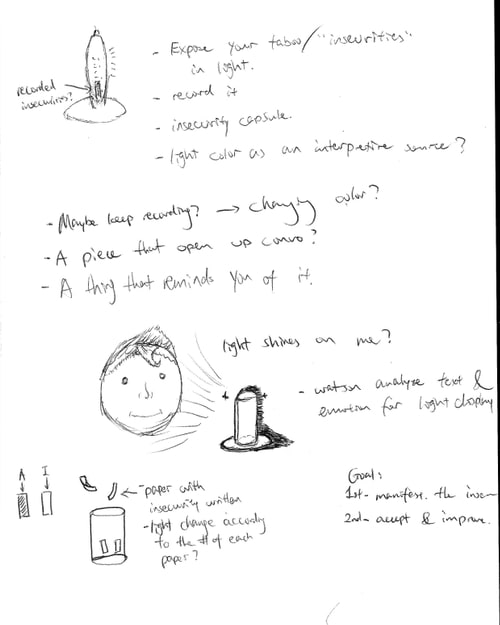 - Expose your taboo/"insecurities"
in light.
recorded
insecurities?
- record it
- insecurity capsule.
- light color as an interpretive source?
- Maybe keep recording? → changing color?
- A piece that open up convo?
- A thing that reminds you of it.
light shines on me?
- watson analyse text &
emotion for light
A I
- paper with
insecurity written
- light change accordly
to the # of each
paper?
Goal:
1st - manifest. the insecu
2nd - accept & improve.